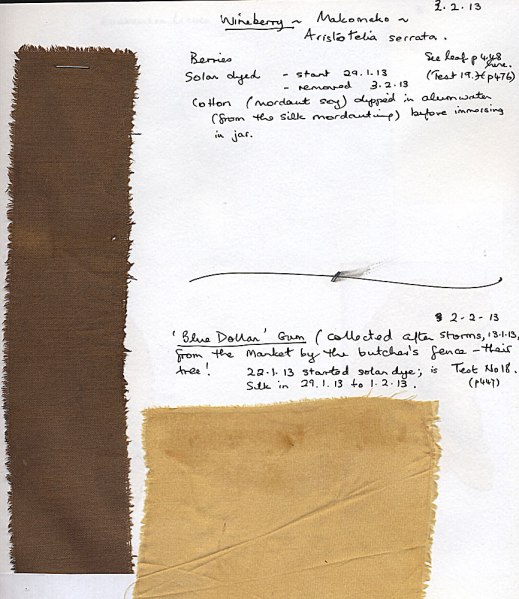 2.2.13
Wineberry ~ Makomako ~
Aristotelia serrata.
Berries
See leaf p448 here.
Solar dyed - start 29.1.13
(Test 19. p476)
- removed 3.2.13
Cotton (mordant soy) dipped in alum water
(from the silk mordanting) before immersing
in jar.
2-2-13
'Blue Dollar' Gum (collected after storms, 13.1.13,
from the Market by the butcher's fence - their
tree! 22.1.13 started solar dye; is Test No18.
Silk in 29.1.13 to 1.2.13. (p447)